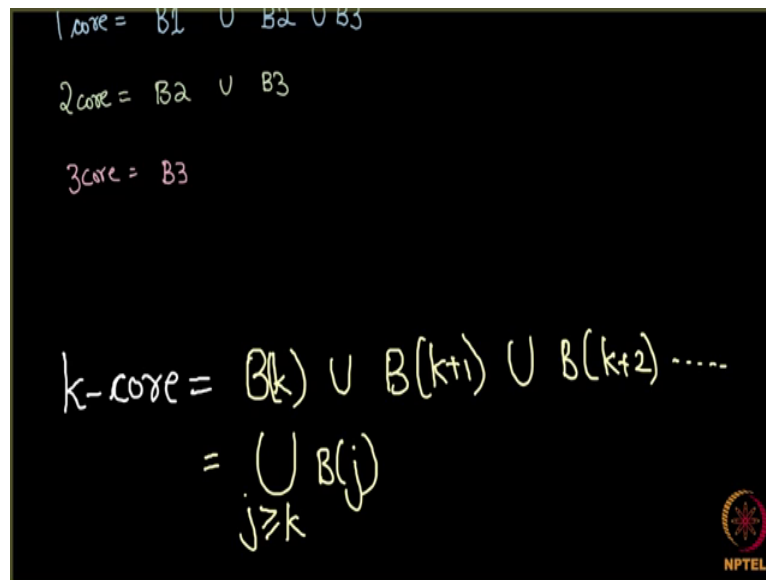 1 core = B1 ∪ B2 ∪ B3
2 core = B2 ∪ B3
3 core = B3
k-core = B(k) ∪ B(k+1) ∪ B(k+2) .....
= ⋃ B(j)
j≥k
NPTEL